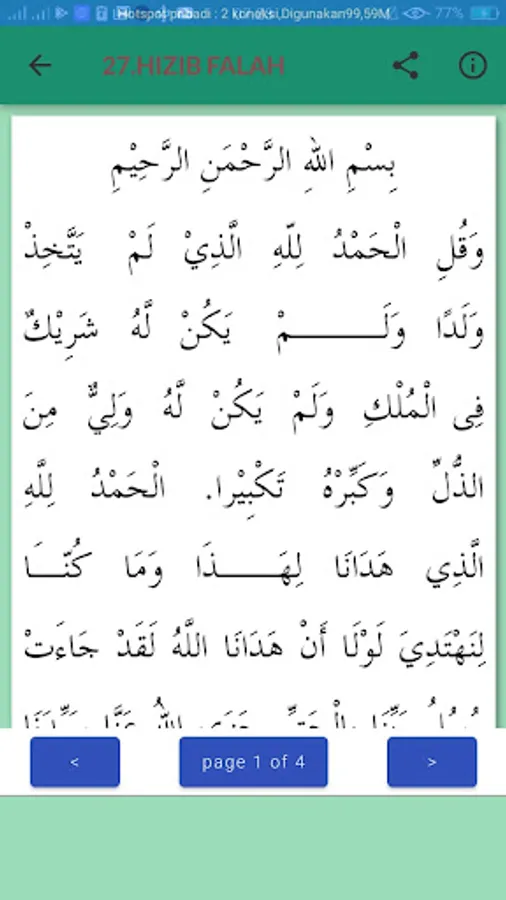 Hotspot pribadi : 2 koneksi,Digunakan99,59M 77%
27.HIZIB FALAH
بِسْمِ اللهِ الرَّحْمَنِ الرَّحِيْمِ
وَقُلِ الْحَمْدُ لِلّهِ الَّذِيْ لَمْ يَتَّخِذْ
وَلَدًا وَلَــــــمْ يَكُنْ لَّهُ شَرِيْكٌ
فِى الْمُلْكِ وَلَمْ يَكُنْ لَّهُ وَلِيٌّ مِنَ
الذُّلِّ وَكَبِّرْهُ تَكْبِيْرا. الْحَمْدُ لِلَّهِ
الَّذِي هَدَانَا لِهَــــــذَا وَمَا كُنَّــا
لِنَهْتَدِيَ لَوْلَا أَنْ هَدَانَا اللَّهُ لَقَدْ جَاءَتْ
< page 1 of 4 >